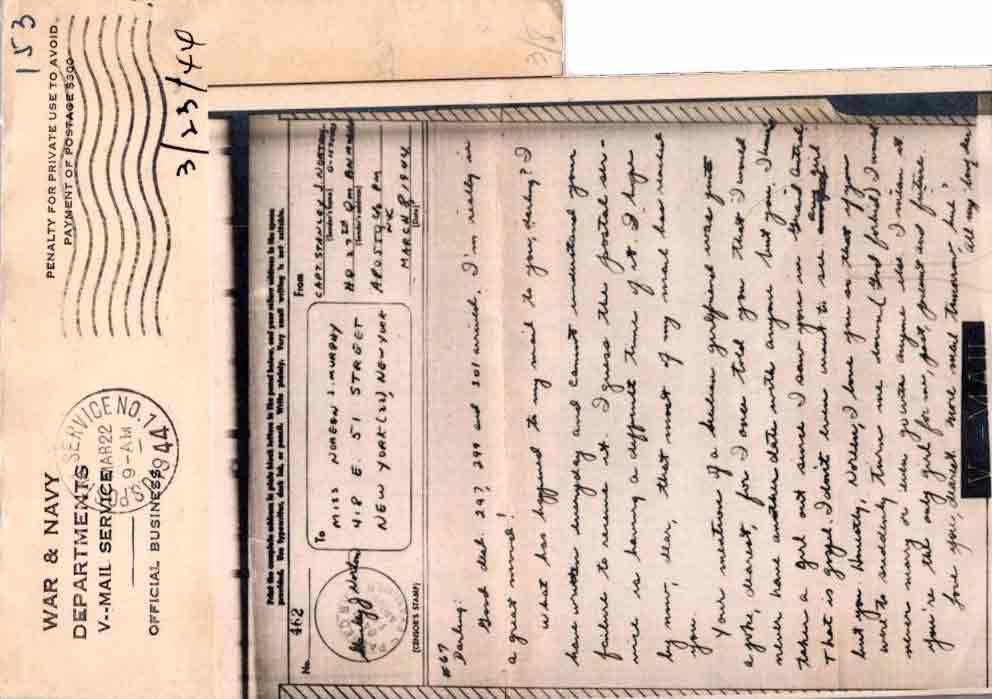 153
3/23/44
3/8
WAR & NAVY
DEPARTMENTS
V--MAIL SERVICE
OFFICIAL BUSINESS
SERVICE NO. 1
MAR 22
9-AM
1944
PENALTY FOR PRIVATE USE TO AVOID
PAYMENT OF POSTAGE $300
Print the complete address in plain block letters in the panel below, and your return address in the space
provided. Use typewriter, dark ink, or pencil. Write plainly. Very small writing is not suitable.
No. 462
(CENSOR'S STAMP)
To
MISS NOREEN J. MURPHY
418 E. 51 STREET
NEW YORK (22), NEW YORK
From
CAPT. STANLEY J. NORTON
(Sender's name)
HQ 27th
(Sender's address)
APO 576 PM
MARCH 8, 1944
(Date)
#67
Darling:
Good deal. 297, 299 and 301 arrived. I'm really in
a great mood!
What has happened to my mail to you, darling? I
have written everyday and cannot understand your
failure to receive it. I guess the postal ser-
vice is having a difficult time of it. I hope
by now, dear, that most of my mail has reached
you.
Your mention of a dozen girlfriends was quite
a joke, dearest, for I once told you that I would
never have another date with anyone but you. I haven't
taken a girl out since I saw you in Grand Central
+ that is gospel. I don't even want to see any girl
but you. Honestly, Noreen, I love you so that if you
were to suddenly turn me down (God forbid) I would
never marry or even go with anyone else. I mean it
you're the only girl for me, past, present and future.
Love you, dearest. More mail tomorrow hid.
All my love
V-MAIL